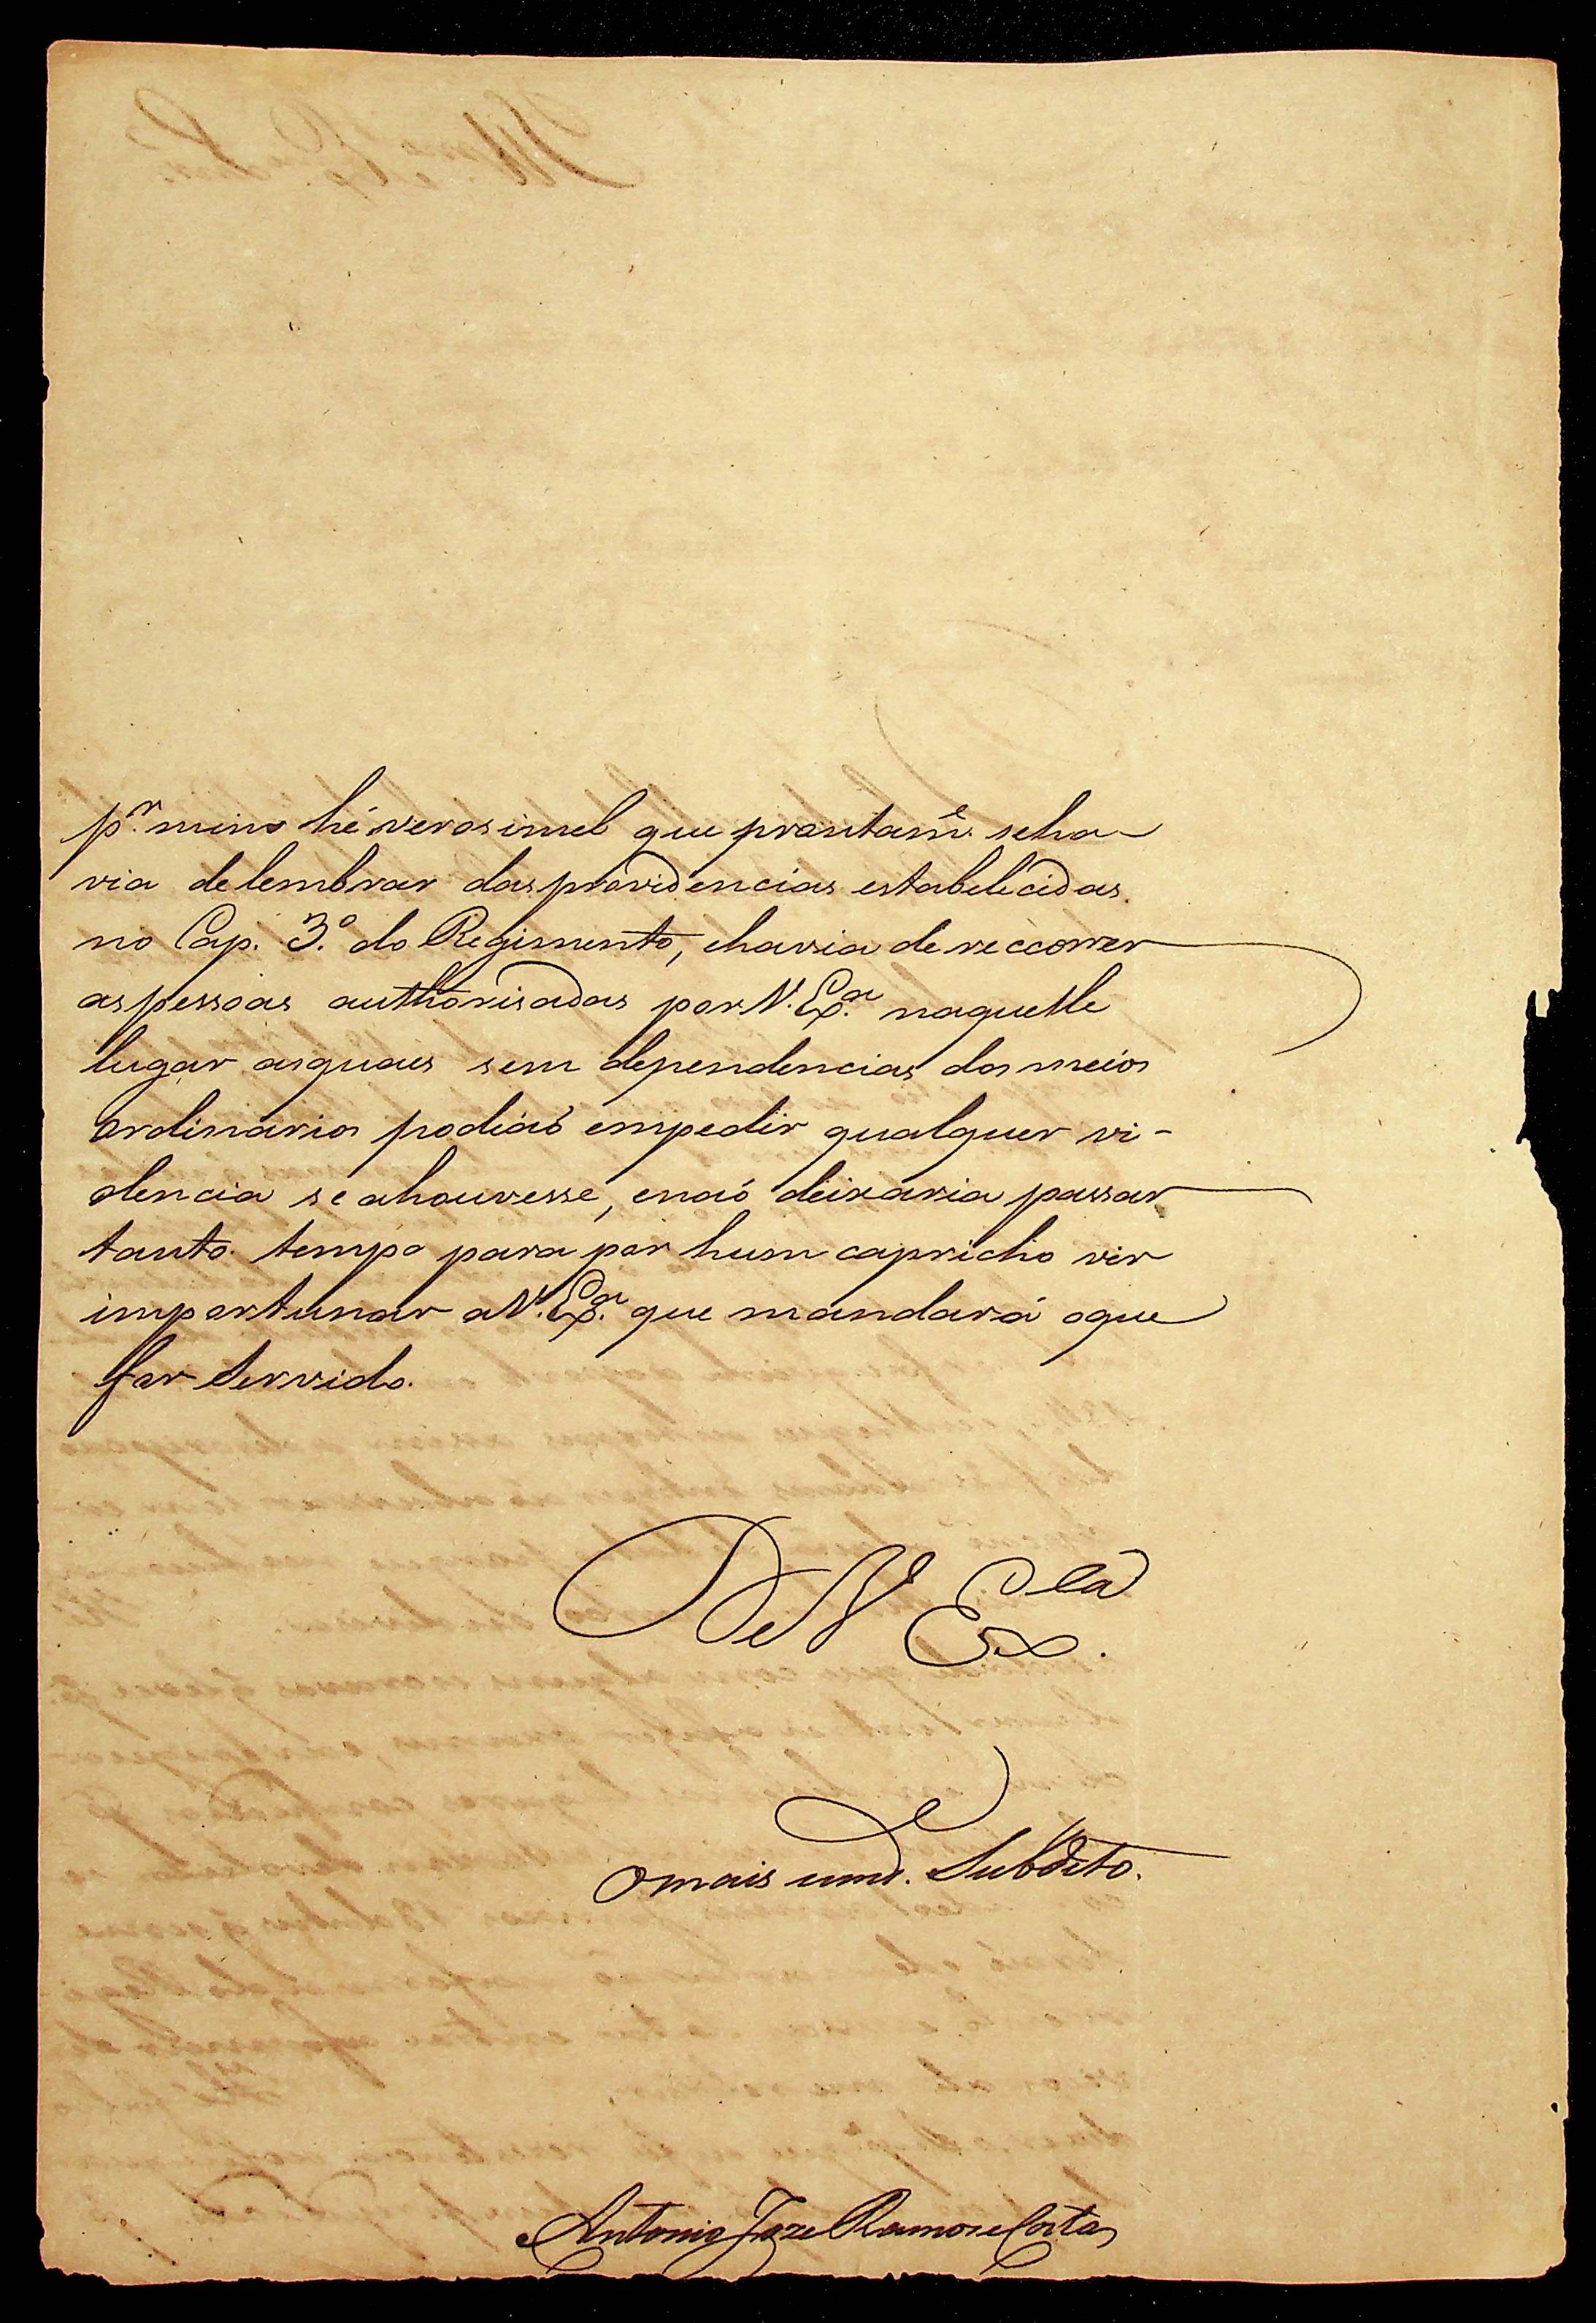 p.r mim hé verosimel que prontam.e seha-
via delembrar das providencias estabelecidas
no Cap. 3.º do Regimento, ehavia de reccorrer
as pessoas authorisadas por V. Ex.a naquelle
lugar asquaes sem dependencias dos meios
ordinarios podiaõ empedir qualquer vi-
olencia se ahouvesse, enaõ deixaria passar
tanto tempo para por hum capricho vir
importunar aV. Ex.a que mandará oque
for Servido.
De V Ex.cia
omais umd. Subdito.
Antonio Joze Ramos e Costa